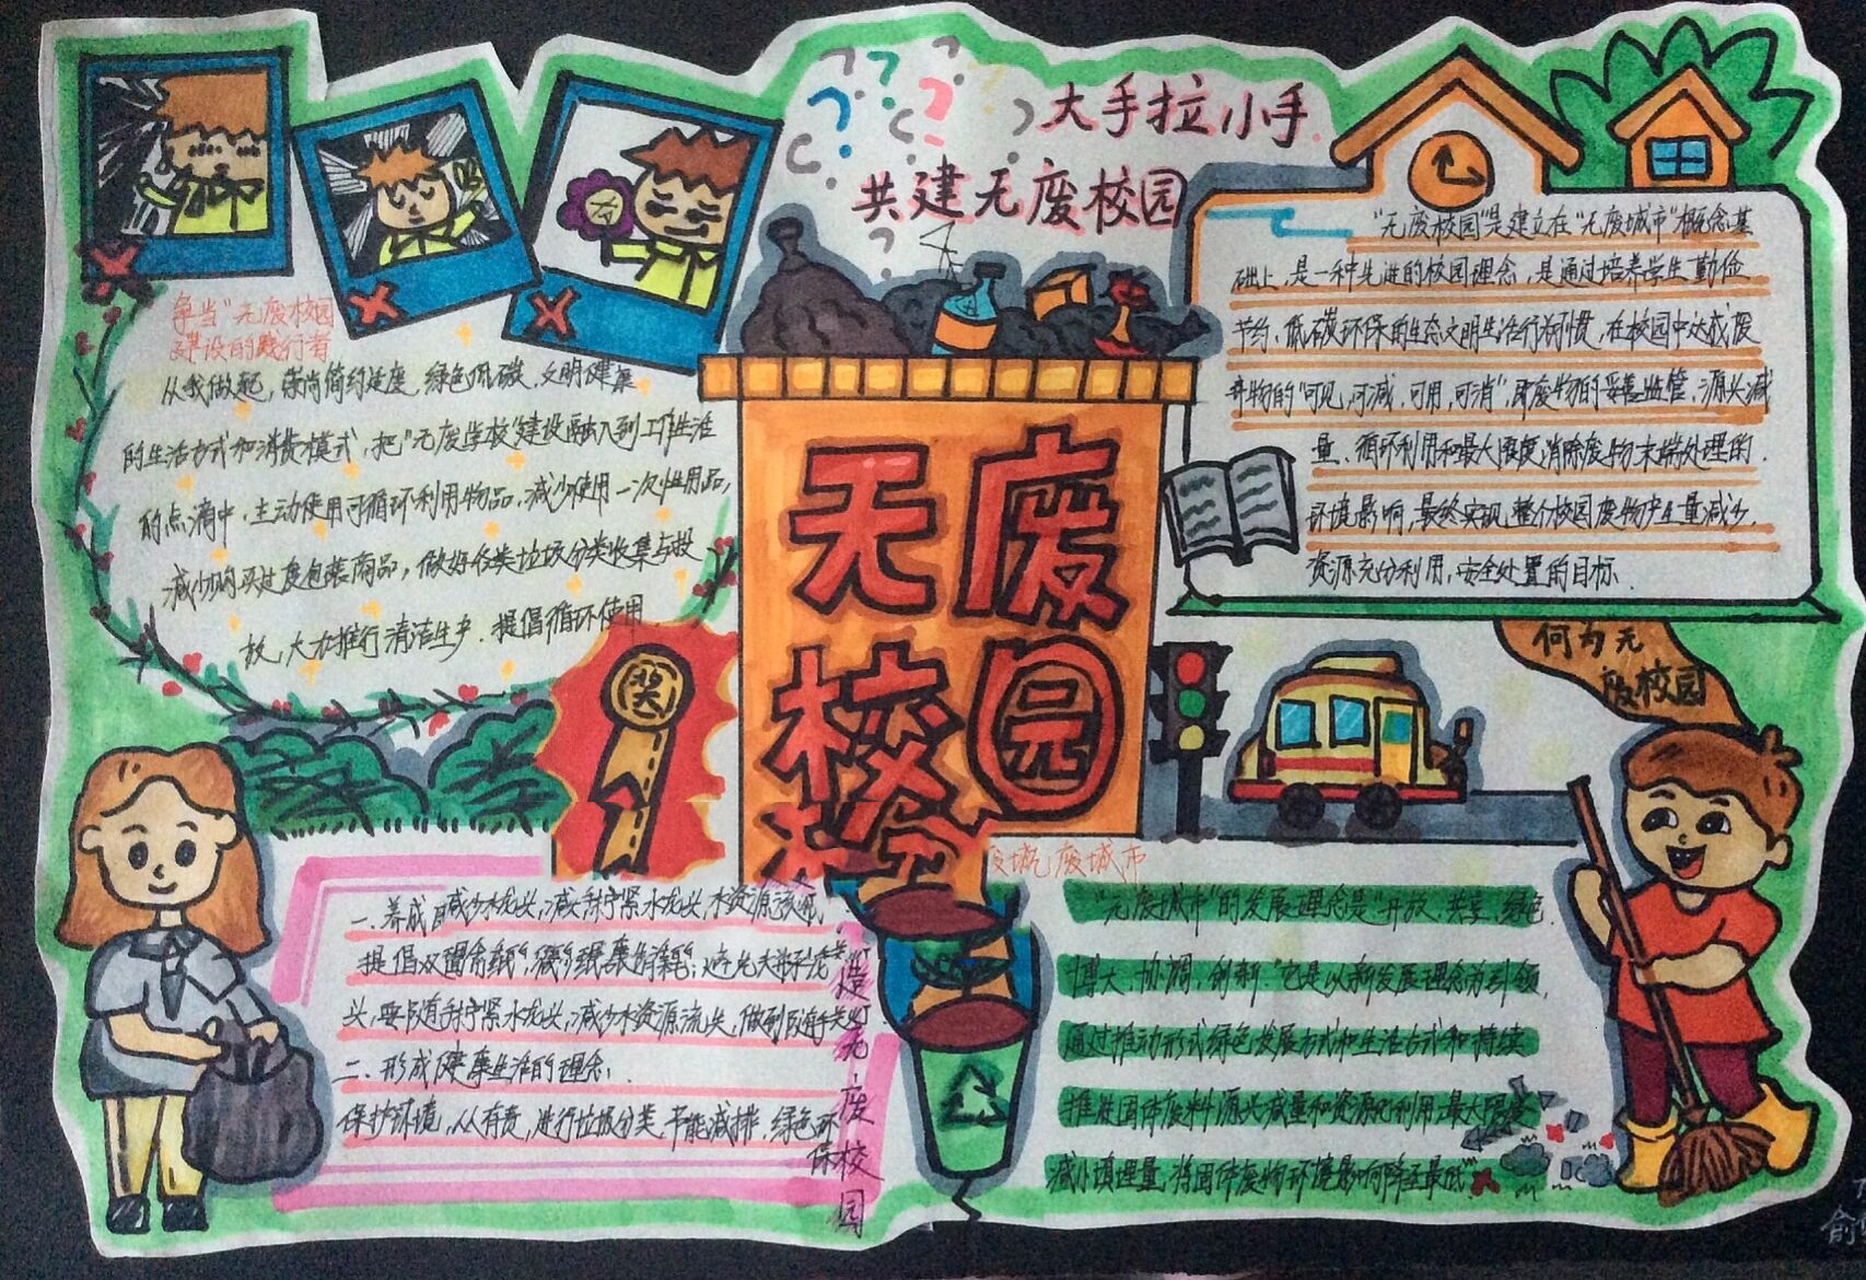 大手拉小手
共建无废校园
争当"无废校园
建设的践行者
从我做起,崇尚简约适度,绿色低碳,文明健康
的生活方式和消费模式,把"无废学校"建设融入到工作生活
的点滴中,主动使用可循环利用物品,减少使用一次性用品,
减少购买过度包装商品,做好各类垃圾分类收集与投
放,大力推行清洁生产,提倡循环使用
"无废校园"是建立在"无废城市"概念基
础上,是一种先进的校园理念,是通过培养学生勤俭
节约、低碳环保的生态文明生活行为习惯,在校园中达成废
弃物的"可见,可减,可用,可消",即废物的妥善监管,源头减
量、循环利用和最大限度消除废物末端处理的
环境影响,最终实现整个校园废物产生量减少,
资源充分利用,安全处置的目标.
无废
校园
奖
何为无
废校园
一.养成
提倡双面用纸
头,要随手拧紧水龙头,减少水资源流失,做到随手关灯
二.形成健康生活的理念.
保护环境,人人有责,进行垃圾分类,节能减排,绿色环
保
造
无
废
校
园
废城市
"无废城市"的发展理念是"开放、共享、绿色、
博大、协调、创新."它是以新发展理念为引领,
通过推动形式绿色发展方式和生活方式和持续
推进固体废料源头减量和资源化利用,最大限度
减小填埋量,将固体废物环境影响降至最低
俞